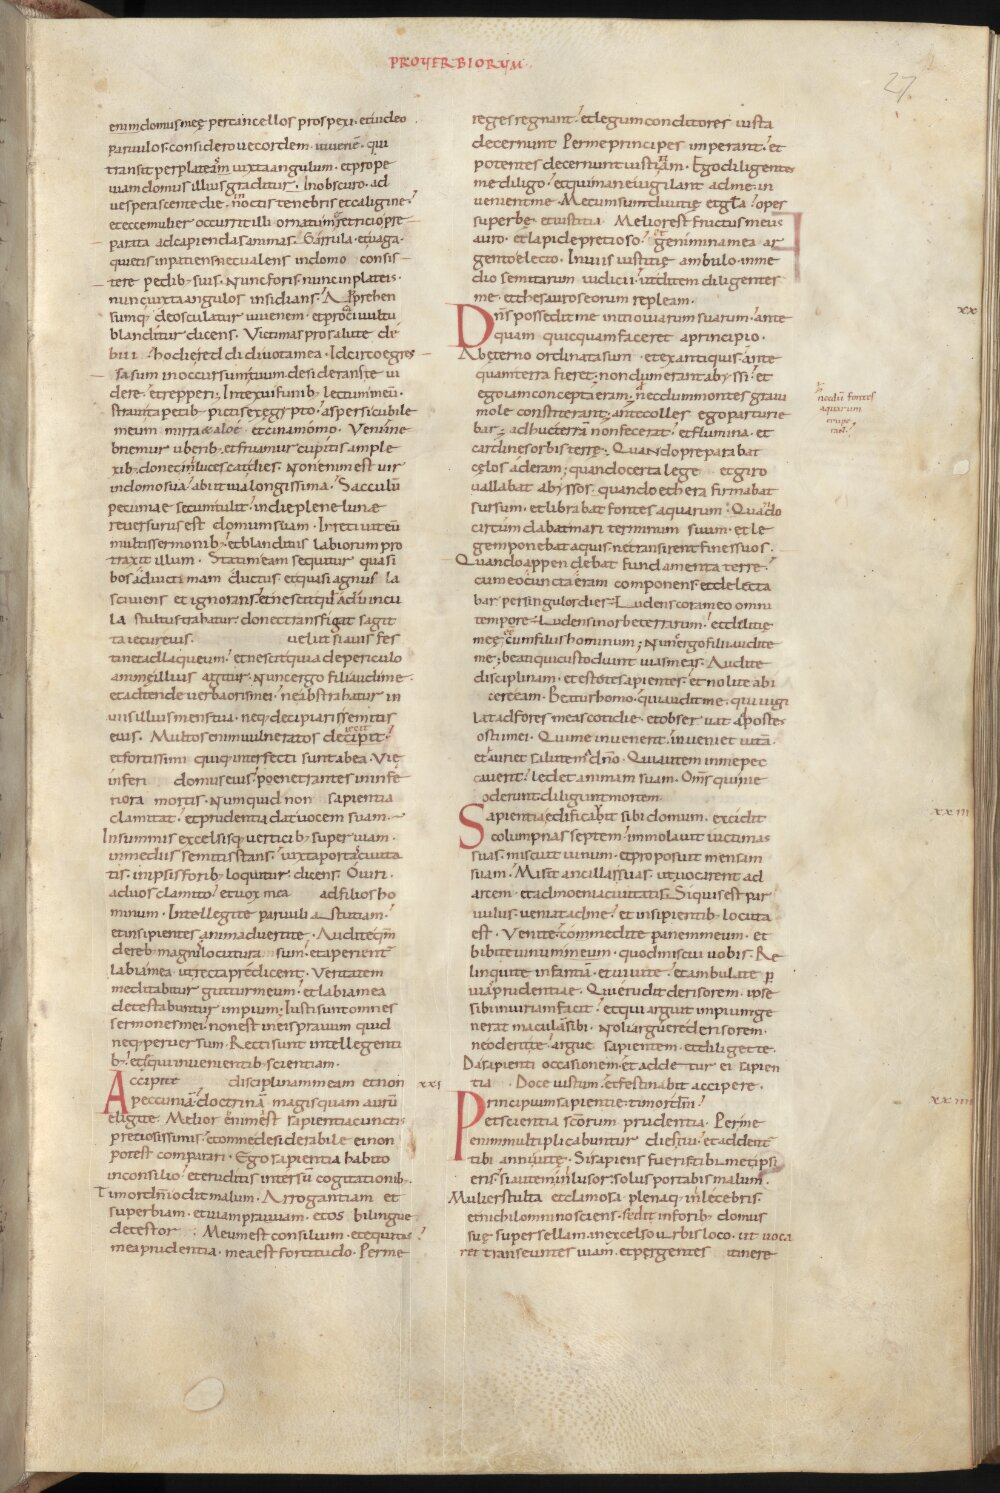 PROVERBIORUM
27
enim domus meę per cancellos prospexi. et video
parvulos. considero vecordem iuvenē. qui
transit per plateam iuxta angulum. et prope
viam domus illius graditur. In obscuro. ad
vesperascente die. in noctis tenebris et caligine.
et ecce mulier occurrit illi ornatu meretricio pre
parata ad capiendas animas. Garrula. et vaga.
quietis inpatiens. nec valens in domo consis
tere pedib; suis. Nunc foris. nunc in plateis.
nunc iuxta angulos insidians. Apprehen
sumq; deosculatur iuvenem. et procaci vultu
blanditur dicens. Victimas pro salute de
bui. hodie reddidi vota mea. Idcirco egres
sa sum in occursum tuum. desiderans te vi
dere. et repperi. Intexui funib; lectum meū.
stravi tapetib; pictis ex ęgypto. aspersi cubile
meum mirra & aloe. et cinamomo. Veni ine
briemur uberib; et fruamur cupitis ample
xib; donec inlucescat dies. Non enim est vir
in domo sua. abiit via longissima. Sacculū
pecuniae secum tulit. in die plene lunę
reversurus est domum suam. Inretivit eū
multis sermonib; et blanditiis labiorum pro
traxit illum. Statim eam sequitur quasi
bos ad victimam ductus. et quasi agnus la
sciviens et ignorans. et nescit qđ ad vincu
la stultus trahatur. donec transfigat sagit
ta iecur eius. velut si avis fes
tinet ad laqueum. et nescit quia de periculo
animę illius agitur. Nunc ergo fili audi me.
et adtende verba oris mei. ne abstrahatur in
viis illius mens tua. neq; decipiaris semitis
eius. Multos enim vulneratos decipit.
iecit
et fortissimi quiq; interfecti sunt ab ea. Vię
inferi domus eius. poenetrantes in infe
riora mortis. Numquid non sapientia
clamitat. et prudentia dat vocem suam.
In summis excelsisq; verticib; super viam.
in mediis semitis stans. iuxta portas civita
tis. in ipsis forib; loquitur dicens. O viri.
ad vos clamito. et vox mea ad filios ho
minum. Intellegite parvuli astutiam.
et insipientes animadvertite. Audite qm̄
de reb; magnis locutura sum. et aperient̄
labia mea ut recta prędicent. Veritatem
meditabitur guttur meum. et labia mea
detestabuntur impium; Iusti sunt omnes
sermones mei. non est in eis pravum quid
neq; perversum. Recti sunt intellegenti
b; et ęqui invenientib; scientiam.
Accipite disciplinam meam et non xxi
peccuniā. doctrinā magis quam aurū
eligite. Melior ē enim est sapientia cunctis
pretiosissimis. et omne desiderabile ei non
potest comparari. Ego sapientia habito
in consilio. et eruditis intersū cogitationib.
Timor dn̄i odit malum. Arrogantiam et
superbiam. et viam pravam. et os bilingue
detestor. Meum est consilium. et ęquitas
mea prudentia. mea est fortitudo. Per me
reges regnant. et legum conditores iusta
decernunt. Per me principes imperant. et
potentes decernunt iustitiam. Ego diligentes
me diligo. et qui mane vigilant ad me. in
venient me. Mecum sunt divitię et głia. opes
superbę. et iustitia. Melior est fructus meus
auro. et lapide pretioso. et genimina mea ar
gento electo. In viis iustitię ambulo. in me
dio semitarum iudicii. ut ditem diligentes
me. et thesauros eorum repleam.
Dn̄s possedit me initio viarum suarum. ante xx
quam quicquam faceret a principio.
Ab ęterno ordinata sum. et ex antiquis. ante
quam terra fieret. nondum erant abyssi. et
ego iam concepta eram. necdum montes gravi
necdū fontes
aquarum
erupe
rant.
mole constiterant. ante colles ego parturie
bar. adhuc terrā non fecerat. et flumina. et
cardines orbis terrę. Quando preparabat
cęlos aderam; quando certa lege et giro
vallabat abyssos. quando ethera firmabat
sursum. et librabat fontes aquarum. Quādo
circūmdabat mari terminum suum. et le
gem ponebat aquis. ne transirent fines suos.
Quando appendebat fundamenta terrę.
cum eo cuncta eram componens. et delecta
bar per singulos dies. Ludens coram eo omni
tempore. Ludens in orbe terrarum. et delitię
meę. cum filiis hominum; Nunc ergo filii audite
me; beati qui custodiunt vias meas. Audite
disciplinam. et estote sapientes. et nolite abi
cere eam. Beatus homo. qui audit me. qui vigi
lat ad fores meas cotidie. et observat ad postes
ostii mei. Qui me invenerit. inveniet vitā.
et auriet salutem a dn̄o. Qui autem in me pec
caverit. ledet animam suam. Om̄s qui me
oderunt. diligunt mortem.
Sapientia ędificabit sibi domum. excidit xxiii
columpnas septem. immolavit victimas
suas. miscuit vinum. et proposuit mensam
suam. Misit ancillas suas. ut vocarent ad
arcem. et ad moenia civitatis. Si quis est par
vulus. veniat ad me. et insipientib; locuta
est. Venite. commedite panem meum. et
bibite vinum meum. quod miscui vobis. Re
linquite infantiā. et vivite. et ambulate p̄
viā prudentiae. Qui erudit derisorem. ipse
sibi iniuriam facit. et qui arguit impium. ge
nerat maculā sibi. Noli arguere derisorem.
ne oderit te. argue sapientem. et diliget te.
Da sapienti occasionem. et addetur ei sapien
tia. Doce iustum. et festinabit accipere.
Principium sapientię. timor dn̄i. xxiiii
et scientia sc̄orum prudentia. Per me
enim multiplicabuntur dies tui. et addent̄
tibi anni vitę. Si sapiens fueris. tibimet ipsi
eris. si autem inlusor. solus portabis malum.
Mulier stulta et clamosa. plenaq; inlecebris.
et nichil omnino sciens. sedit in forib; domus
suę super sellam. in excelso urbis loco. ut voca
ret transeuntes viam. et pergentes itinere